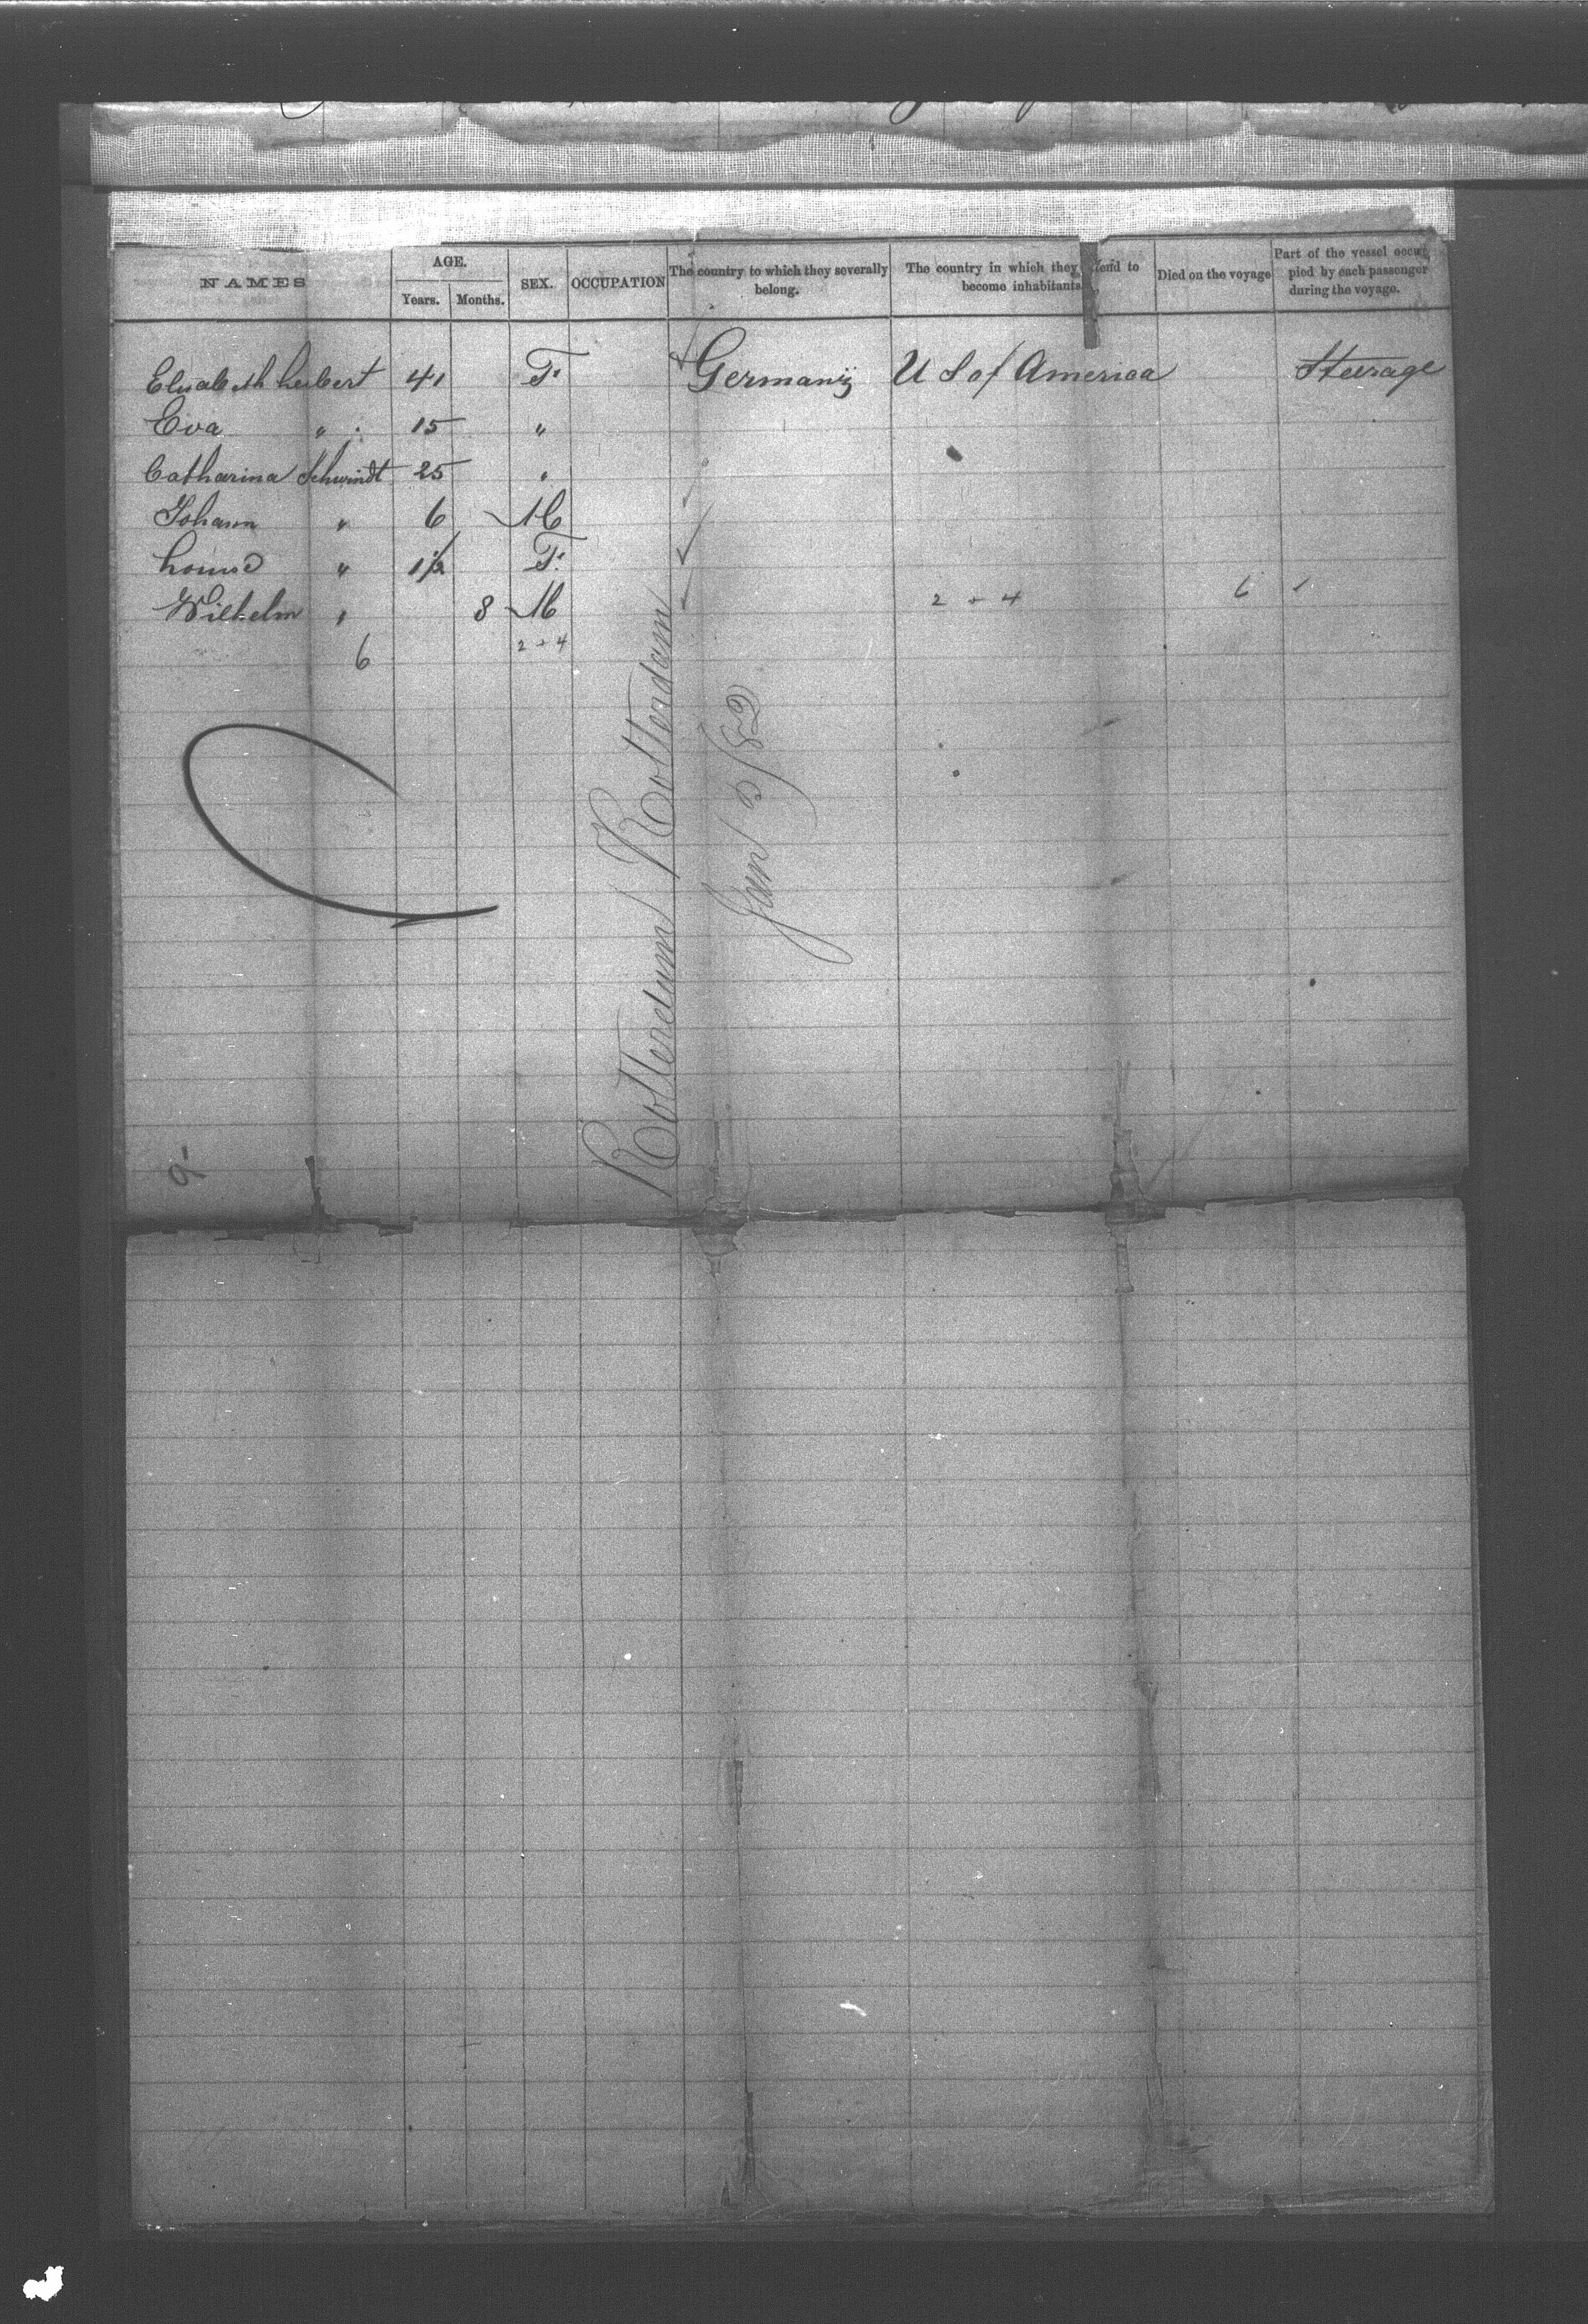 NAMES AGE. Years. Months. SEX. OCCUPATION The country to which they severally belong. The country in which they tend to become inhabitants Died on the voyage Part of the vessel occupied by each passenger during the voyage.
Elisabeth Leibert 41 F. Germany U S of America Steerage
Eva " 15 "
Catharina Schwindt 25 "
Johann " 6 M
Louise " 1 1/2 F.
Wilhelm " 8 M 2 + 4 6
6 2 + 4
Rotterdam / Rotterdam
Jan 3/82
9